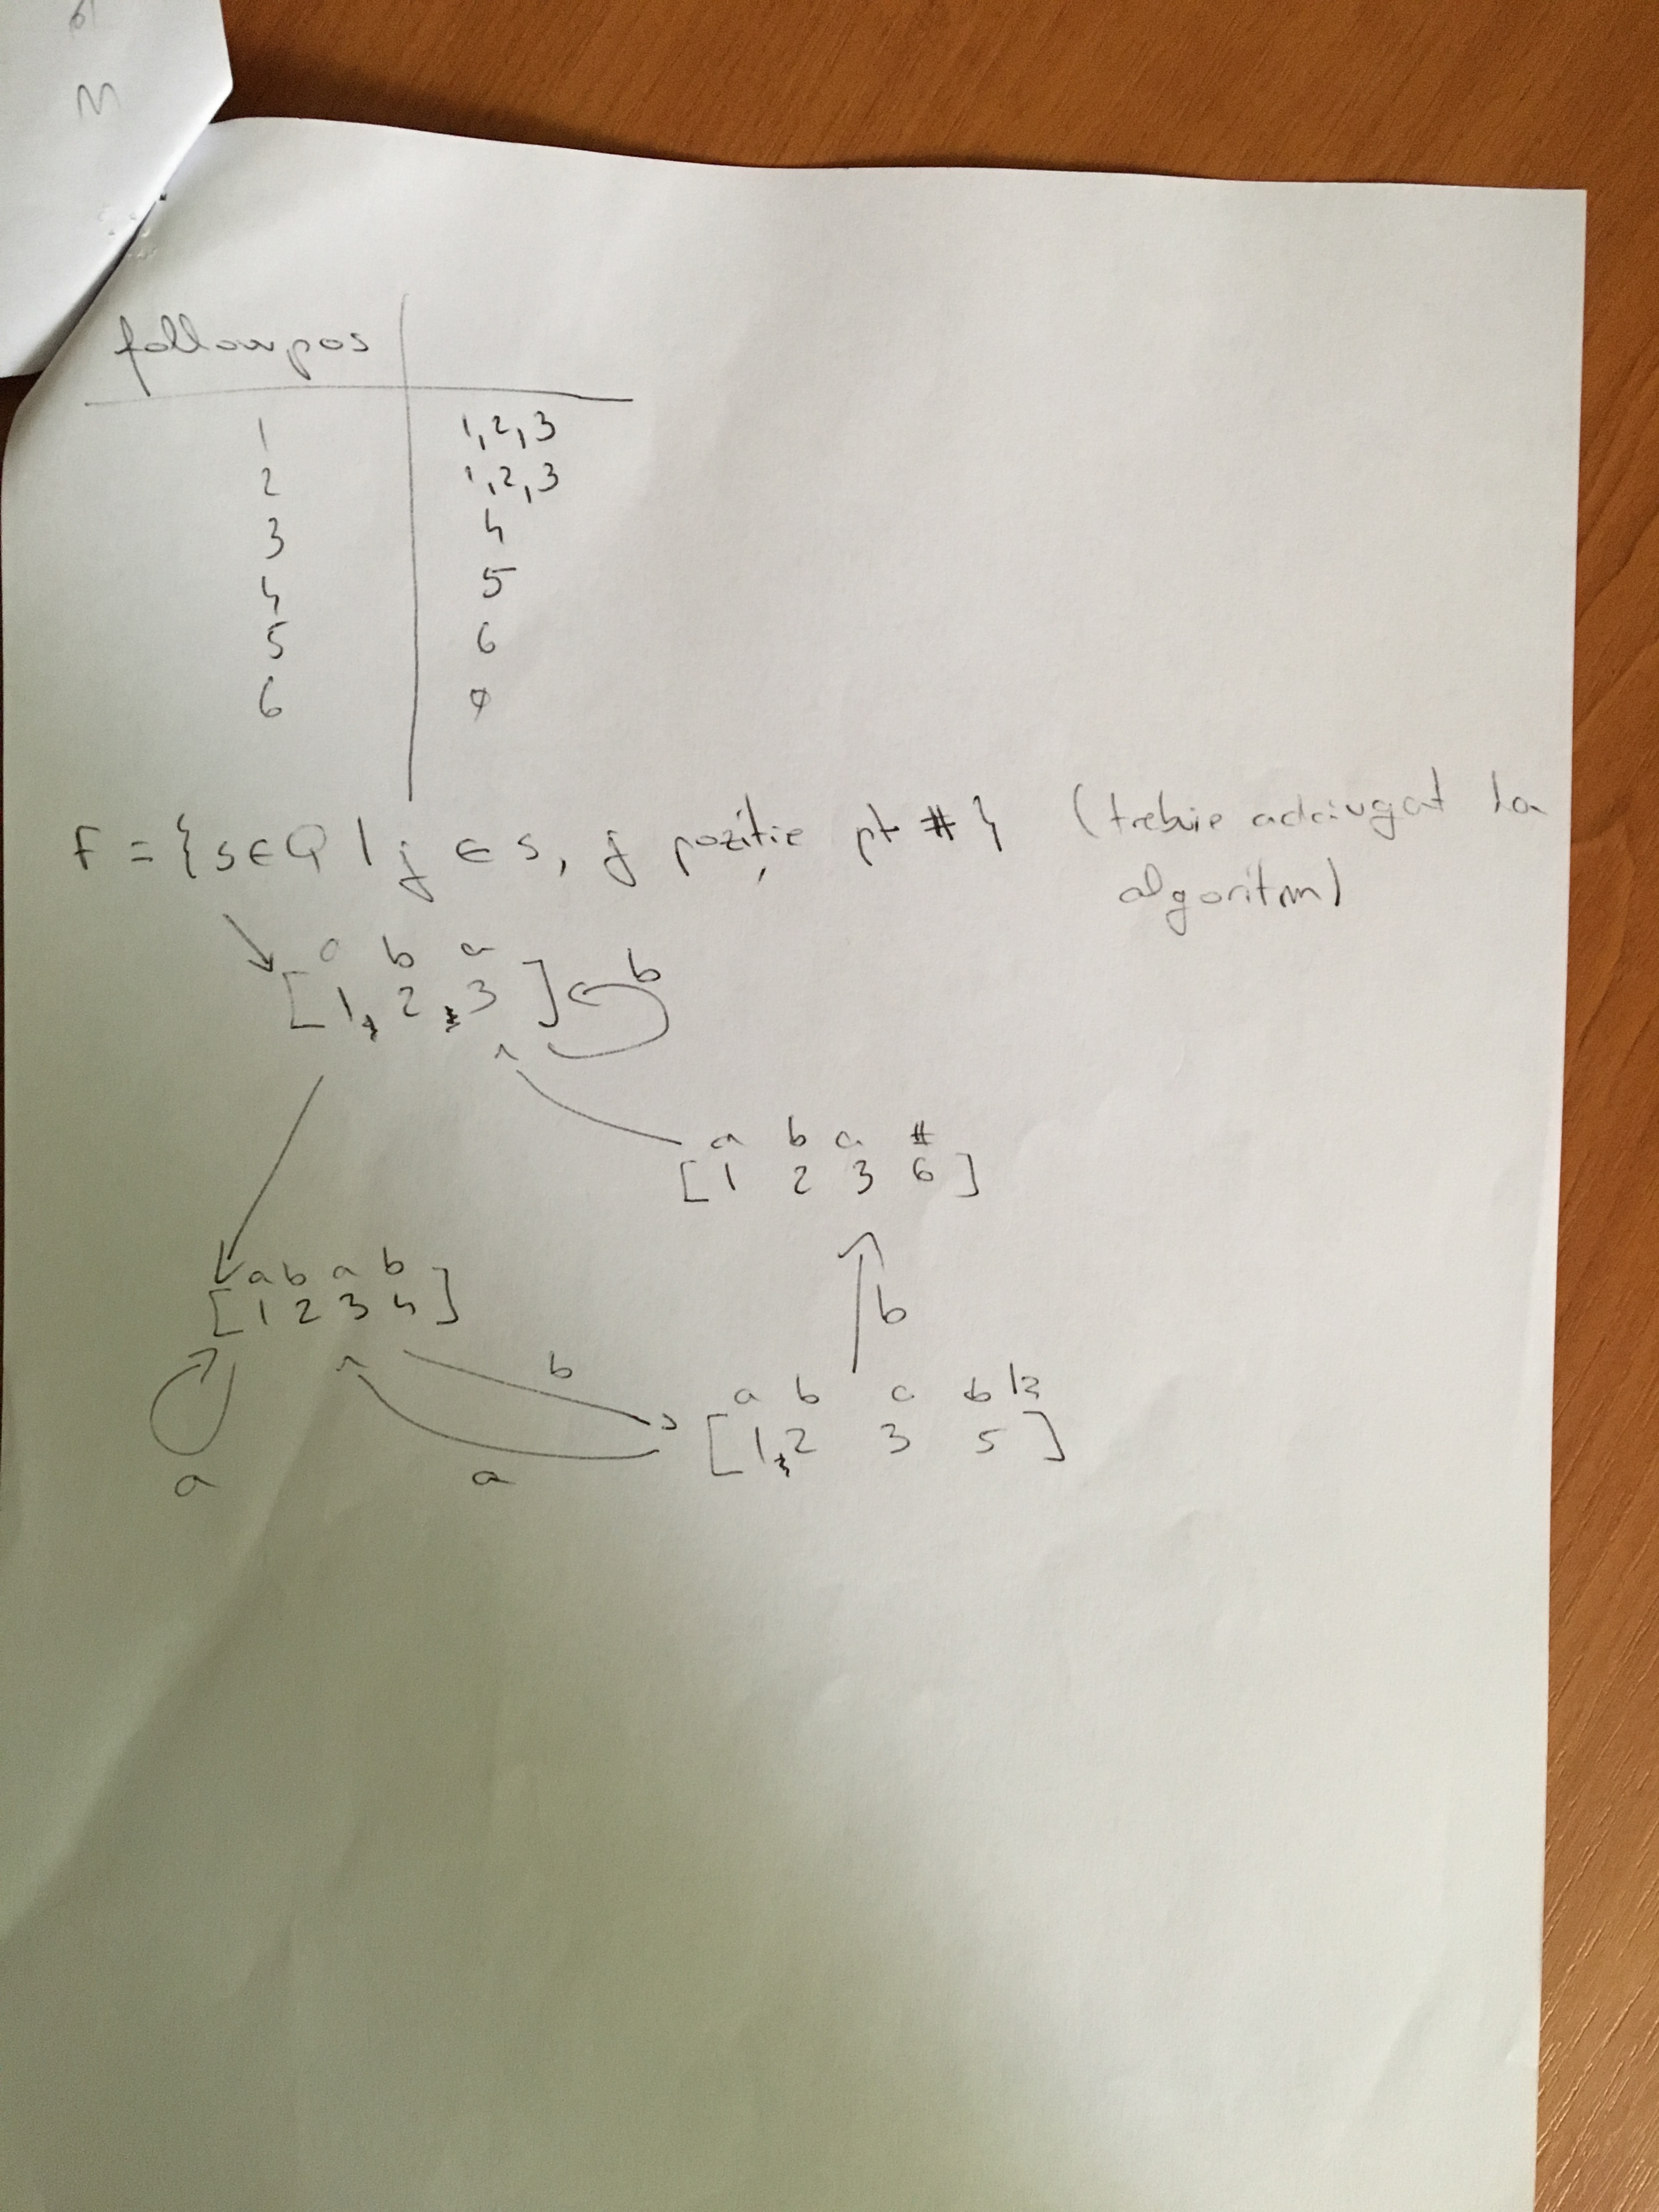 M
followpos
1 1,2,3
2 1,2,3
3 4
4 5
5 6
6 ∅
F = {s ∈ Q | j ∈ s, j poziție pt #} (trebuie adăugat la
algoritm)
a b a
[1, 2, 3] b
a b a #
[1 2 3 6]
a b a b
[1 2 3 4]
b
b
a b a b
[1,2 3 5]
a
a